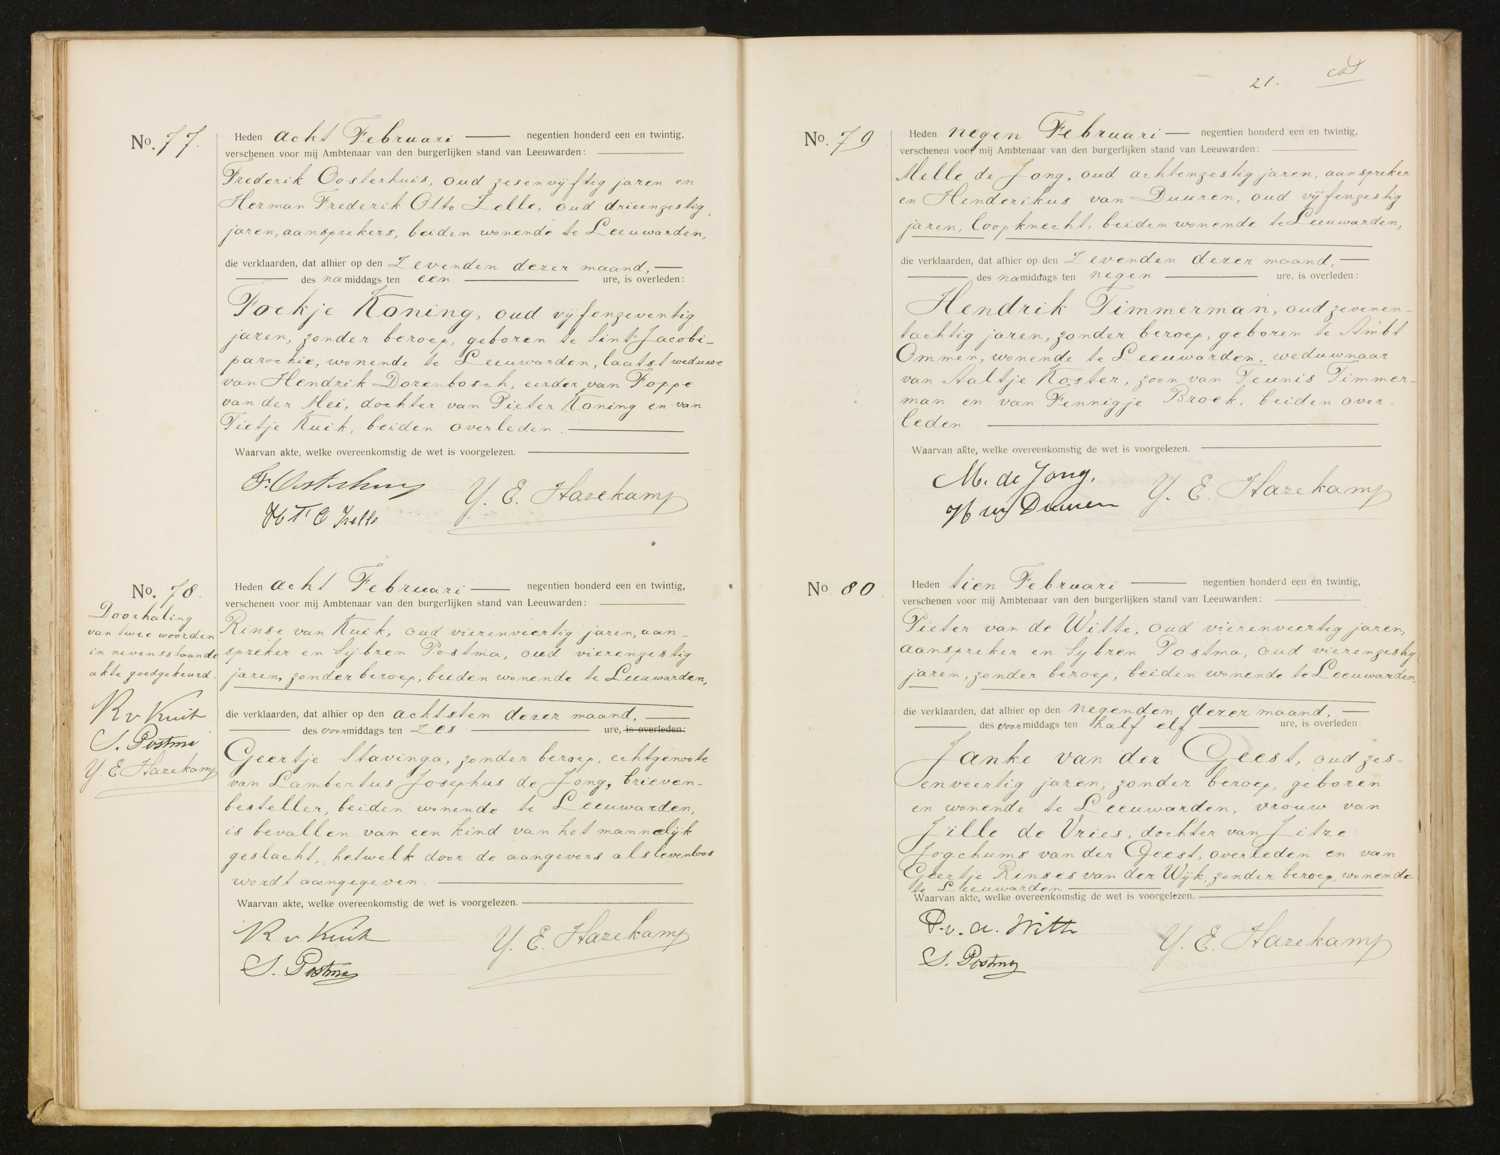 No. 77.
Heden acht Februari — negentien honderd een en twintig,
verschenen voor mij Ambtenaar van den burgerlijken stand van Leeuwarden:
Frederik Oosterhuis, oud zesenvijftig jaren en
Herman Frederik Otto Zelle, oud drieenzestig
jaren, aansprekers, beiden wonende te Leeuwarden,
die verklaarden, dat alhier op den Zevenden dezer maand, —
— des namiddags ten een — ure, is overleden:
Foekje Koning, oud vijfenzeventig
jaren, zonder beroep, geboren te Sint Jacobi-
parochie, wonende te Leeuwarden, laatst weduwe
van Hendrik Dorenbosch, eerder van Foppe
van der Mei, dochter van Pieter Koning en van
Tietje Kuik, beiden overleden. —
Waarvan akte, welke overeenkomstig de wet is voorgelezen. —
F. Oosterhuis
Y. E. Hazekamp
H F O Zelle
No. 78.
Doorhaling
van twee woorden
in nevensstaande
akte goedgekeurd.
R v Kuik
S. Postma
Y E Hazekamp
Heden acht Februari — negentien honderd een en twintig,
verschenen voor mij Ambtenaar van den burgerlijken stand van Leeuwarden: —
Rinse van Kuik, oud vierenveertig jaren, aan-
spreker en Sijbren Postma, oud vierenzestig
jaren, zonder beroep, beiden wonende te Leeuwarden,
die verklaarden, dat alhier op den achtsten dezer maand, —
— des voormiddags ten Zes — ure, is overleden:
Geertje Stavinga, zonder beroep, echtgenoote
van Lambertus Josephus de Jong, brieven-
besteller, beiden wonende te Leeuwarden,
is bevallen van een kind van het mannelijk
geslacht, hetwelk door de aangevers als levenloos
wordt aangegeven. —
Waarvan akte, welke overeenkomstig de wet is voorgelezen. —
R v Kuik
Y. E. Hazekamp
S. Postma
21.
No. 79
Heden negen Februari — negentien honderd een en twintig,
verschenen voor mij Ambtenaar van den burgerlijken stand van Leeuwarden: —
Melle de Jong, oud achtenzestig jaren, aanspreker
en Henderikus van Duuren, oud vijfenzestig
jaren, loopknecht, beiden wonende te Leeuwarden,
die verklaarden, dat alhier op den Zevenden dezer maand, —
— des namiddags ten negen — ure, is overleden:
Hendrik Timmerman, oud zevenen-
tachtig jaren, zonder beroep, geboren te Ambt
Ommen, wonende te Leeuwarden, weduwnaar
van Aaltje Koster, zoon van Teunis Timmer-
man en van Fennigje Broek, beiden over-
leden —
Waarvan akte, welke overeenkomstig de wet is voorgelezen. —
M. de Jong.
Y. E. Hazekamp
H van Duuren
No 80
Heden tien Februari — negentien honderd een en twintig,
verschenen voor mij Ambtenaar van den burgerlijken stand van Leeuwarden: —
Pieter van de Witte, oud vierenveertig jaren,
aanspreker en Sijbren Postma, oud vierenzestig
jaren, zonder beroep, beiden wonende te Leeuwarden,
die verklaarden, dat alhier op den negenden dezer maand, —
— des voormiddags ten half elf — ure, is overleden:
Janke van der Geest, oud zes-
enveertig jaren, zonder beroep, geboren
en wonende te Leeuwarden, vrouw van
Jille de Vries, dochter van Jitze
Jogchums van der Geest, overleden en van
Geertje Rinses van der Wijk, zonder beroep, wonende
te Leeuwarden —
Waarvan akte, welke overeenkomstig de wet is voorgelezen. —
P. v. d. Witte
Y. E. Hazekamp
S. Postma